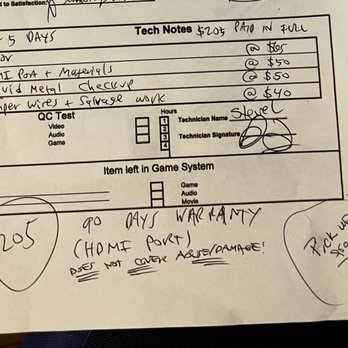 d to Satisfaction:
Tech Notes $205 PAID IN FULL
5 DAYS
@ $65
MI PORT + MATERIALS @ $50
UID METAL CHECKUP @ $50
PER WIRES + SALVAGE WORK @ $40
QC Test
Hours
Video
1
Technician Name STEVE L
Audio
2
Game
3
Technician Signature
4
Item left in Game System
Game
Audio
Movie
205
90 DAYS WARRANTY
(HDMI PORT)
DOES NOT COVER ABUSE/DAMAGE!
PICK UP